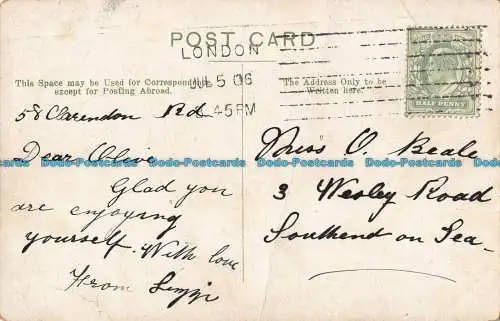 POST CARD
LONDON
JUL 5 06
45PM
HALF PENNY
This Space may be Used for Correspondence
except for Posting Abroad.
The Address Only to be
Written here.
58 Clarendon Rd
Dear Olive
Glad you
are enjoying
yourself. With love
From Lizzie
Miss O. Beale
3 Wesley Road
Southend on Sea
Dodo-Postcards Dodo-Postcards Dodo-Postcards Dodo-Postcards
Dodo-Postcards Dodo-Postcards Dodo-Postcards Dodo-Postcards